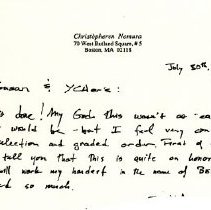 Christopheren Nomura
70 West Rutland Square, #5
Boston, MA 02118
July 30th,
& 
done! My God, this wasn't as
would be - but I feel very
selection and graded order. First of
tell you that this is quite an honor
will work my hardest in the name of
so much.